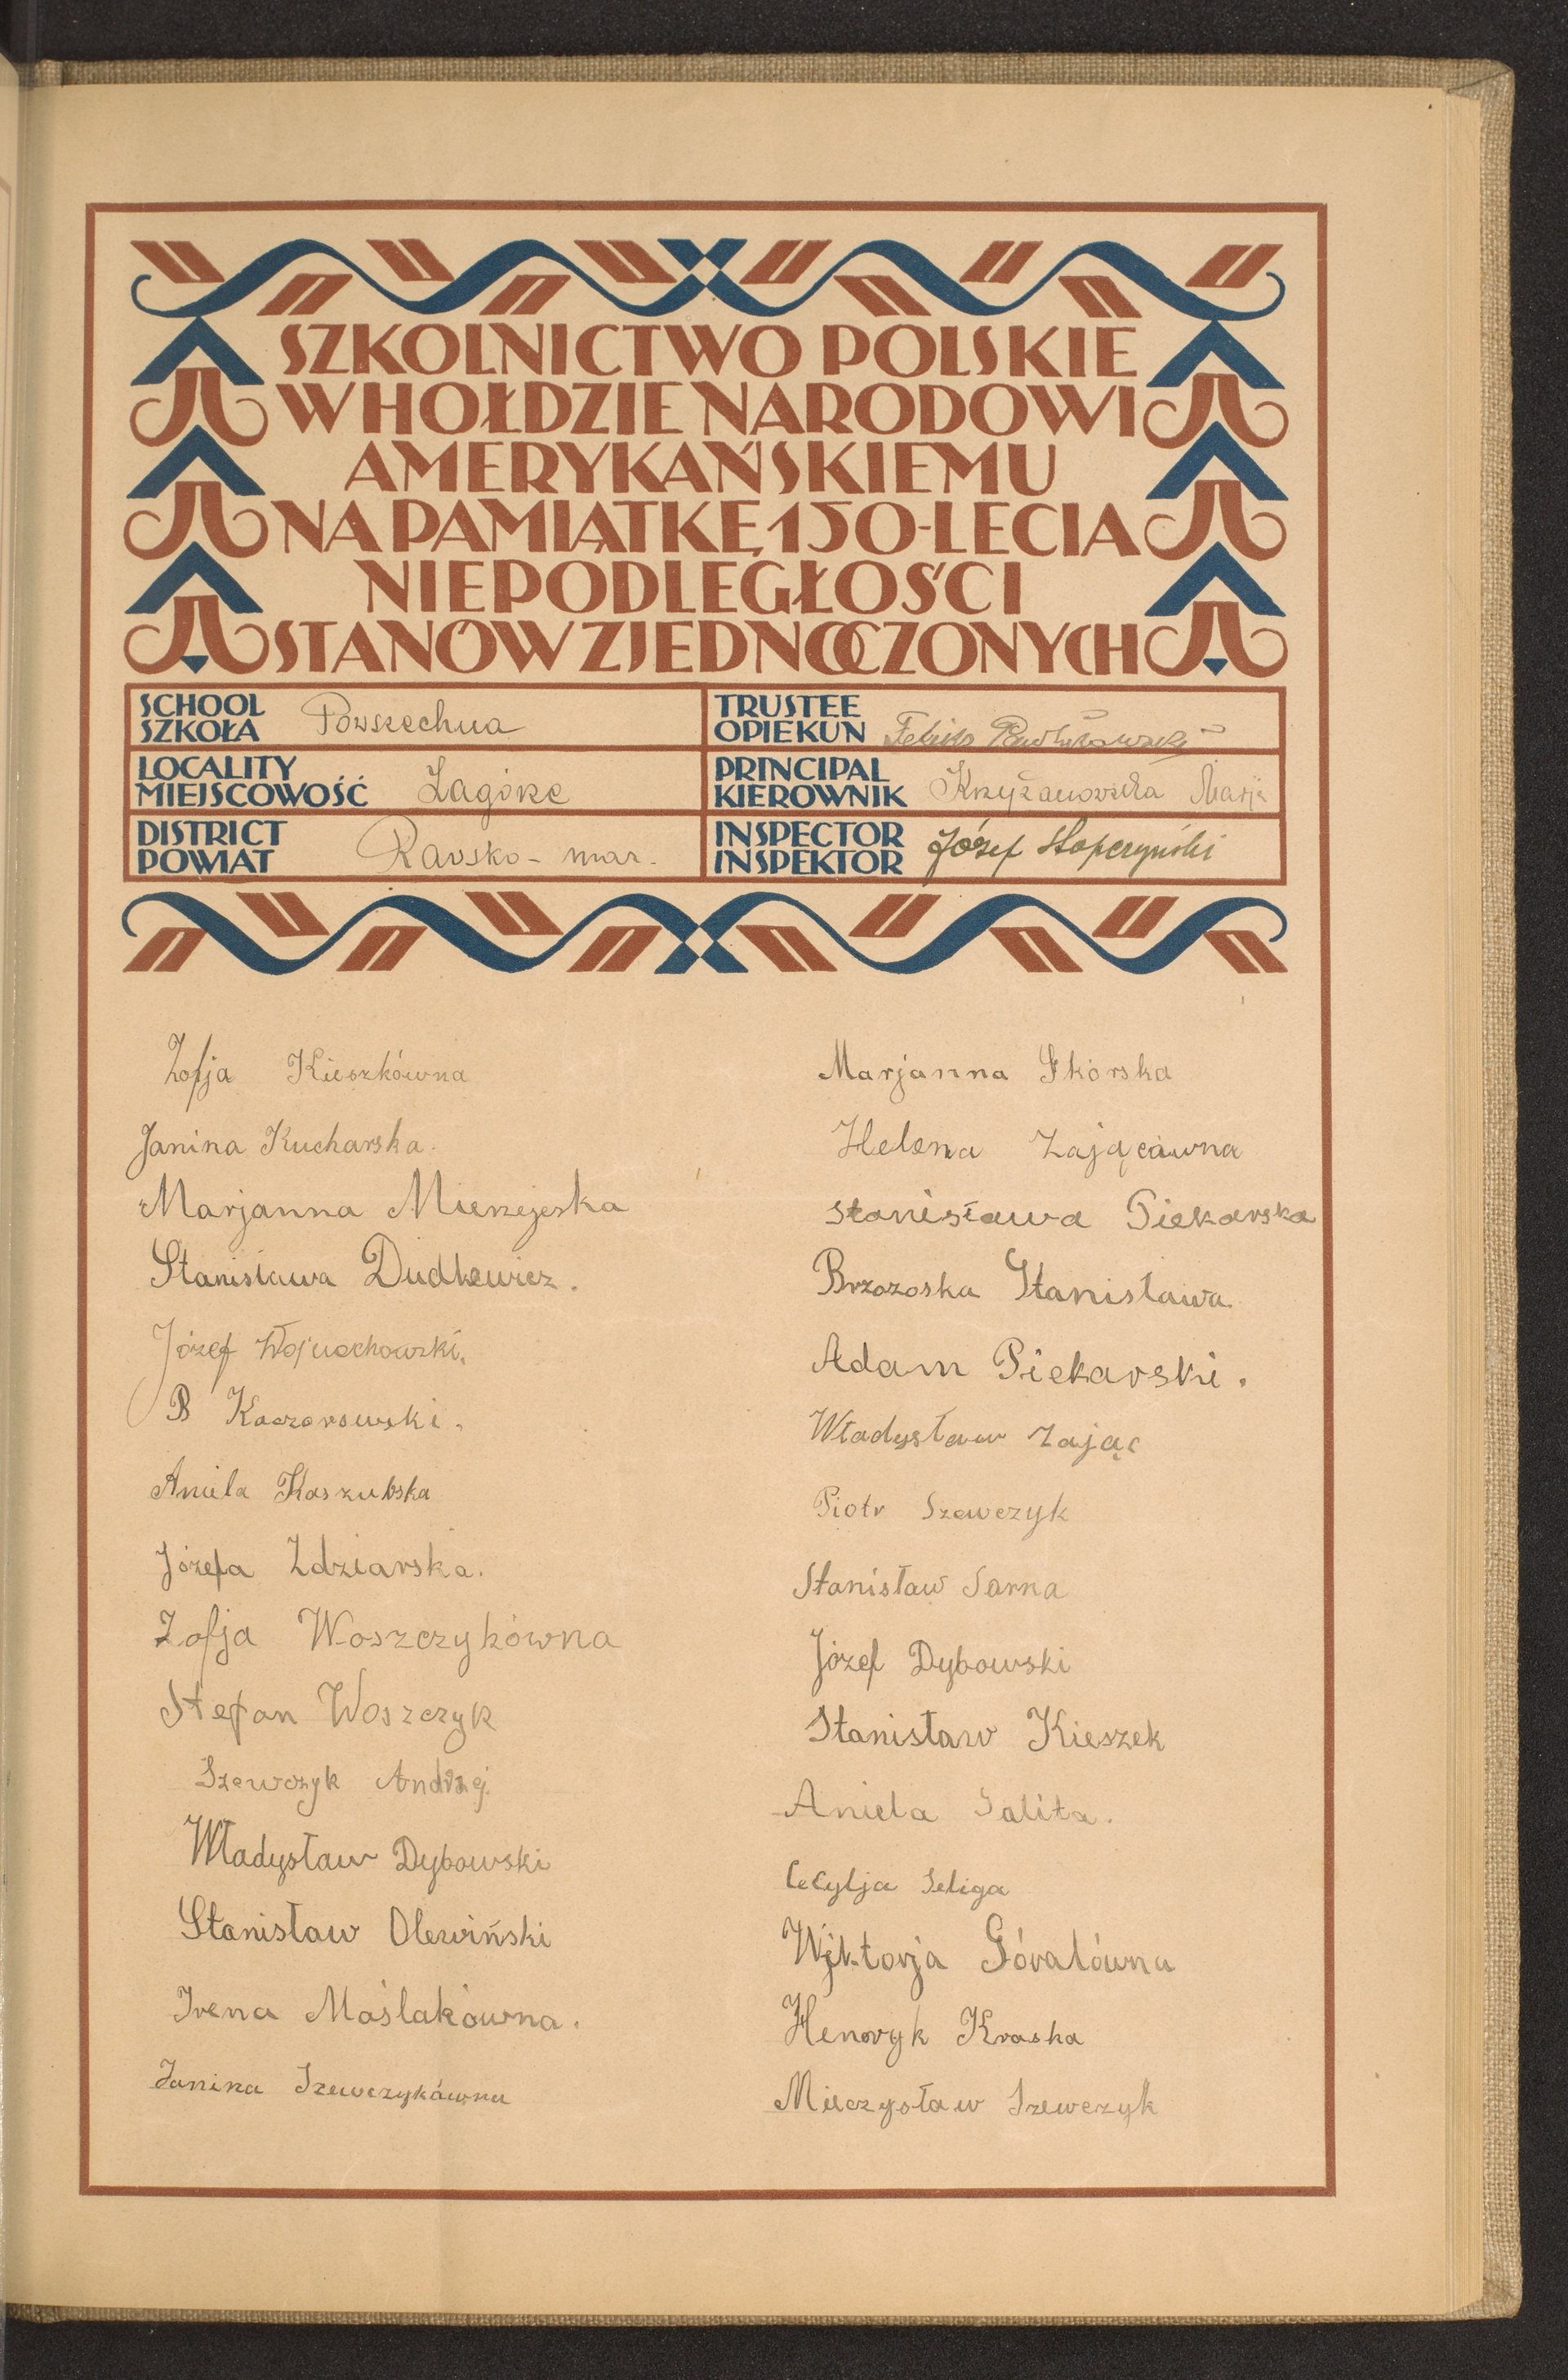 SZKOLNICTWO POLSKIE
W HOŁDZIE NARODOWI
AMERYKAŃSKIEMU
NA PAMIĄTKĘ 150-LECIA
NIEPODLEGŁOŚCI
STANÓW ZJEDNOCZONYCH
SCHOOL
SZKOŁA Powszechna
TRUSTEE
OPIEKUN Feliks
LOCALITY
MIEJSCOWOŚĆ Zagórze
PRINCIPAL
KIEROWNIK Krzyżanowska Marja
DISTRICT
POWIAT Rawsko - maz.
INSPECTOR
INSPEKTOR Józef Słopczyński
Zofja Kieszkówna
Janina Kucharska.
Marjanna Mierzejeska
Stanisława Dudkewicz.
Józef Wojciechowski.
B Kaczorowski.
Aniela Kaszubska
Józefa Zdziarska.
Zofja Woszczykówna
Stefan Woszczyk
Szewczyk Andrzej.
Władysław Dybowski
Stanisław Olewiński
Irena Maślakówna.
Janina Szewczykówna
Marjanna Skórska
Helena Zającówna
Stanisława Piekarska
Brzozoska Stanisława.
Adam Piekarski.
Władysław Zając
Piotr Szewczyk
Stanisław Sarna
Józef Dybowski
Stanisław Kieszek
Aniela Salita.
Cecylja Seliga
Wiktorja Góralówna
Henryk Kraska
Mieczysław Szewczyk